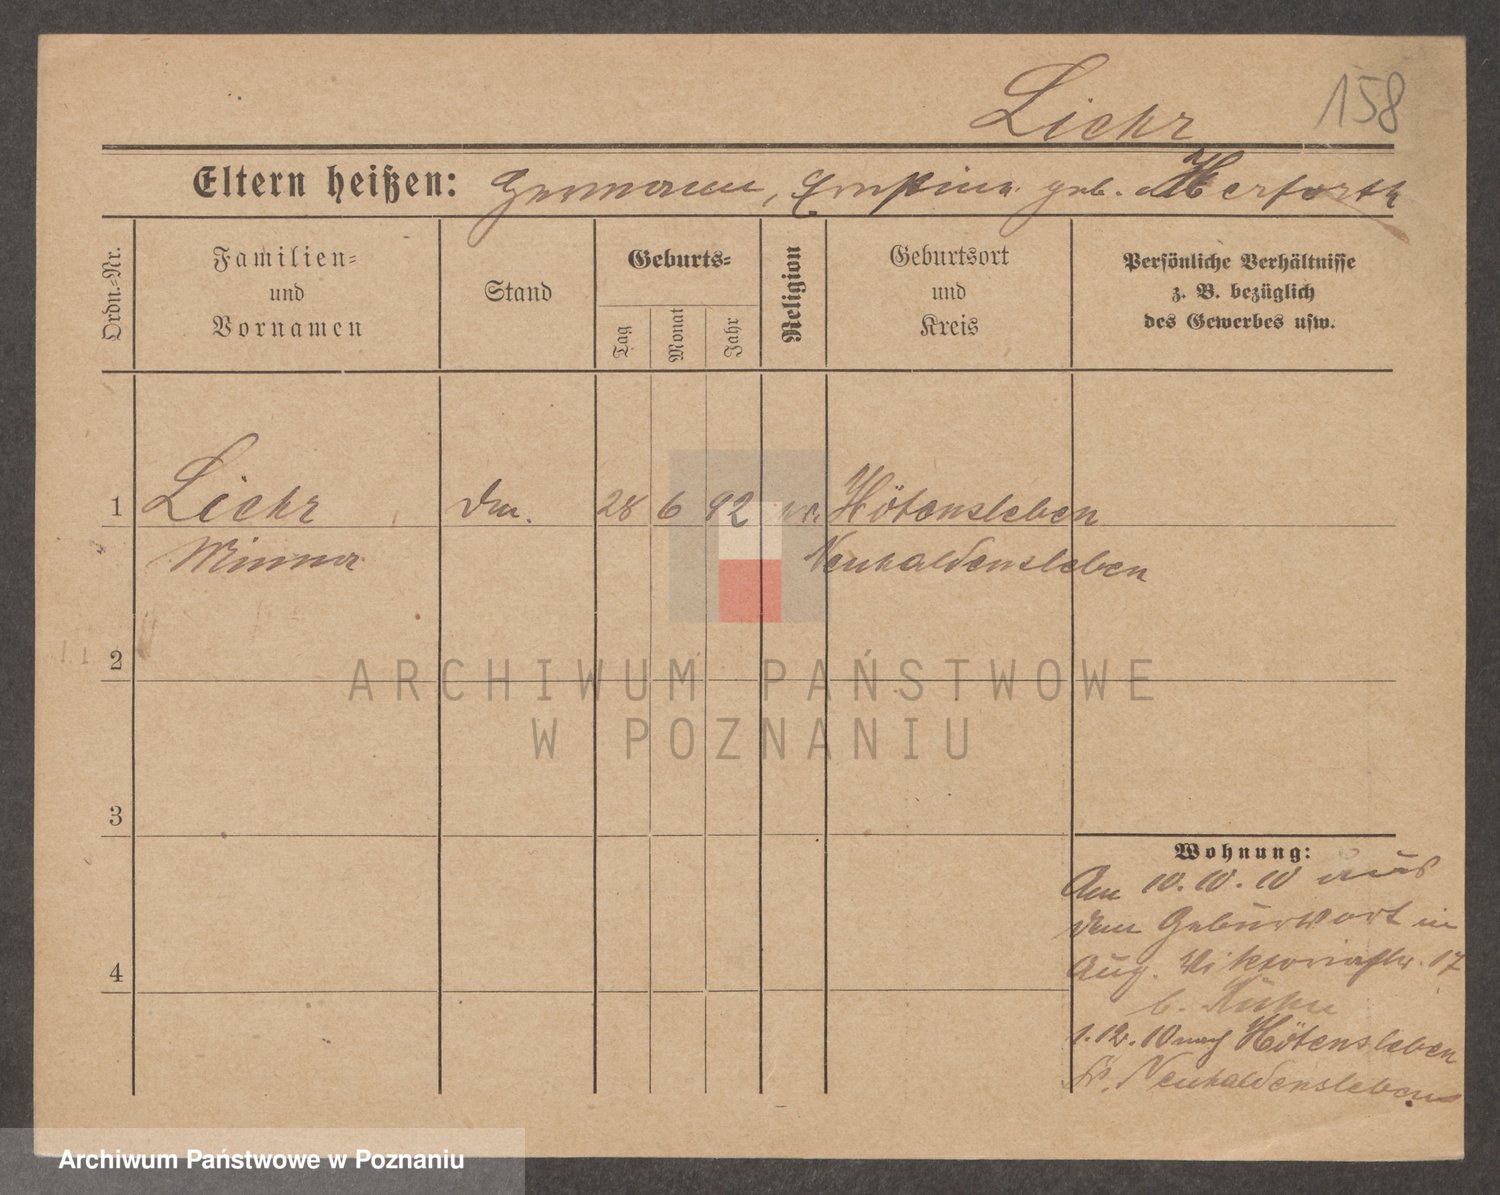 Liehr
158
Eltern heißen: Hermann, Ernstine geb. Herforth
Ordn.-Nr.
Familien-
und
Vornamen
Stand
Geburts-
Tag
Monat
Jahr
Religion
Geburtsort
und
Kreis
Persönliche Verhältnisse
z. B. bezüglich
des Gewerbes usw.
1 Liehr 28 6 92 Hötensleben
Minna Neuhaldensleben
2
3
4
Wohnung:
Am 10.10.10 aus
dem Geburtsort in
Aug. Viktoriastr. 17
b. Kuhn
1.12.10 nach Hötensleben
Kr. Neuhaldensleben
ARCHIWUM PAŃSTWOWE
W POZNANIU
Archiwum Państwowe w Poznaniu